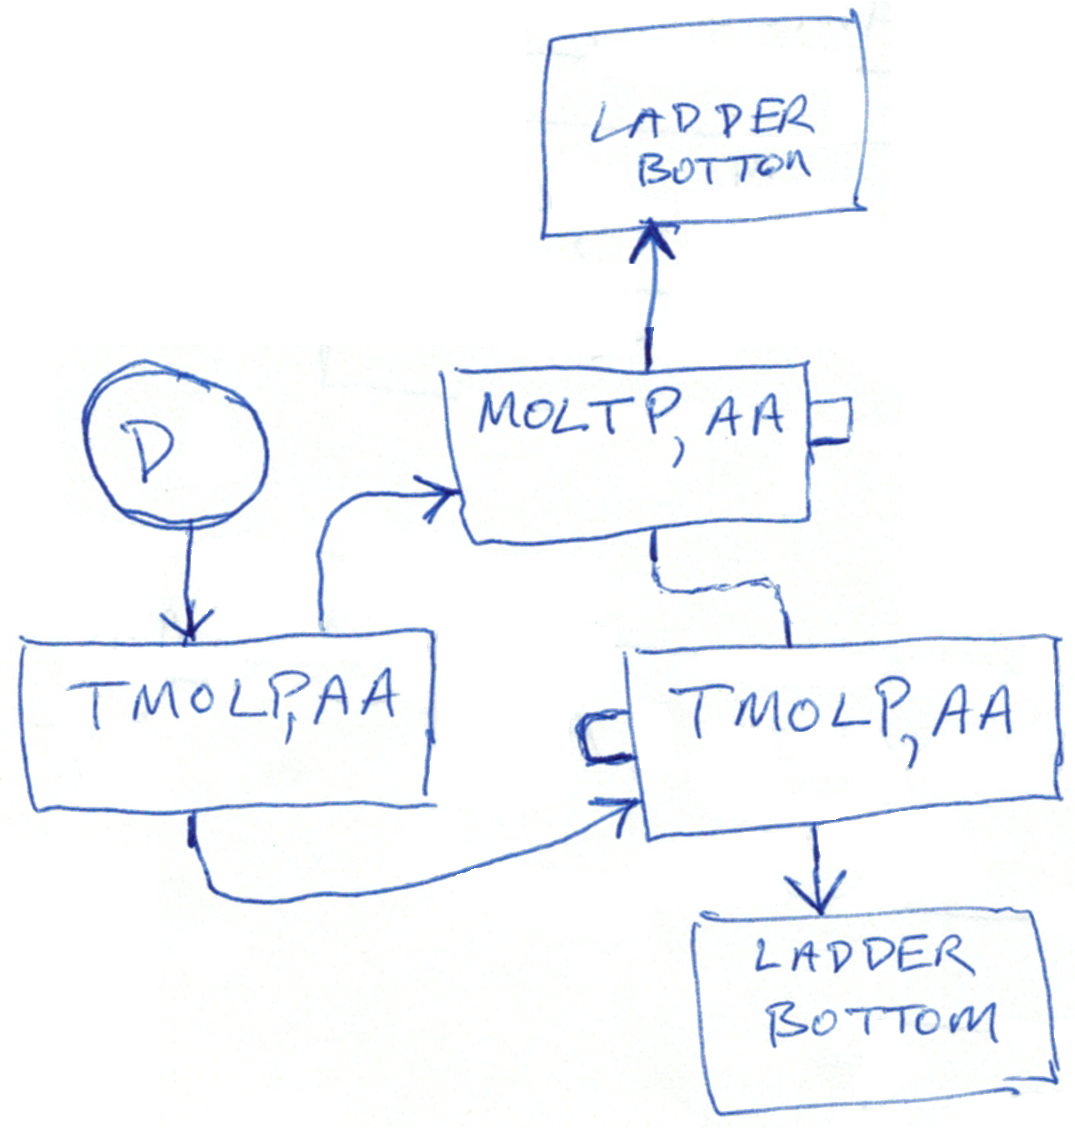 LADDER
BOTTOM
D
MOLTP, AA
TMOLP, AA
TMOLP, AA
LADDER
BOTTOM